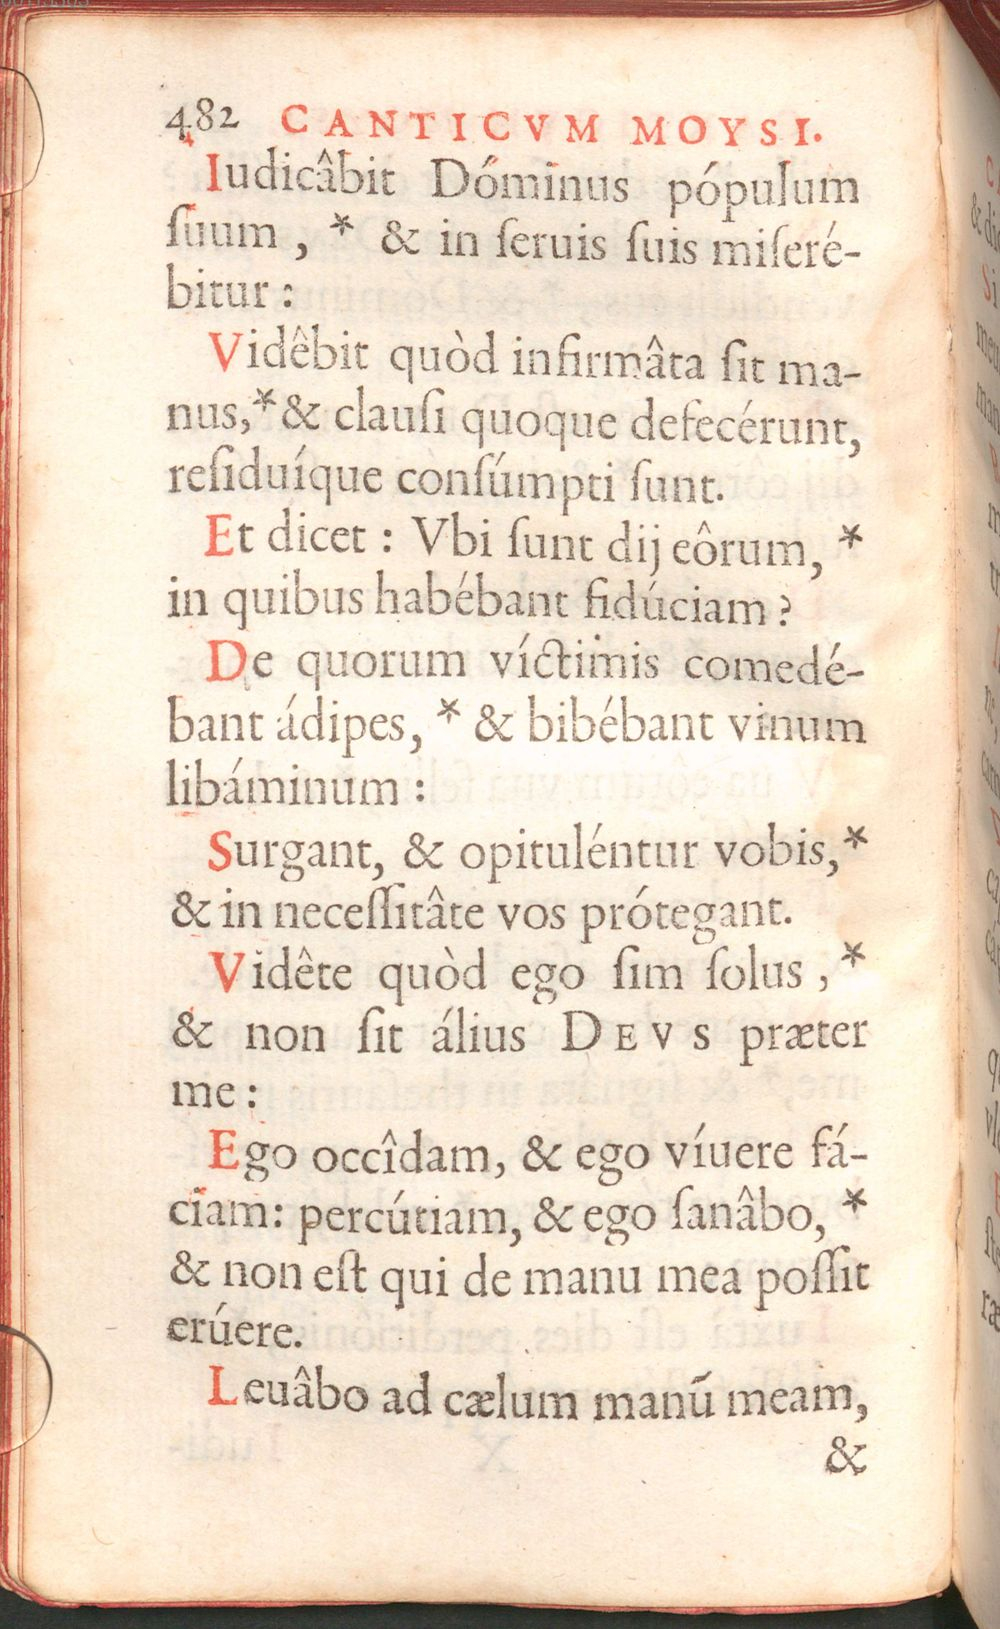 482 CANTICVM MOYSI.
Iudicâbit Dóminus pópulum
ſuum , * & in ſeruis ſuis miſeré-
bitur :
Vidêbit quòd infirmâta ſit ma-
nus,* & clauſi quoque defecérunt,
reſiduíque conſúmpti ſunt.
Et dicet : Vbi ſunt dij eôrum, *
in quibus habébant fidúciam ?
De quorum víctimis comedé-
bant ádipes, * & bibébant vinum
libáminum :
Surgant, & opituléntur vobis,*
& in neceſſitâte vos prótegant.
Vidête quòd ego ſim ſolus ,*
& non ſit álius DEVS præter
me :
Ego occîdam, & ego víuere fá-
ciam: percútiam, & ego ſanâbo, *
& non eſt qui de manu mea poſſit
erúere.
Leuâbo ad cælum manū meam,
&